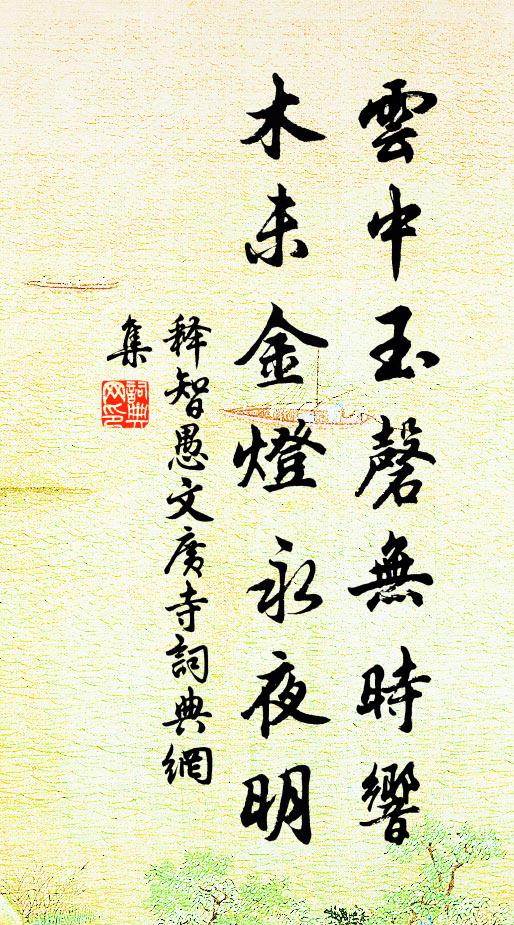 雲中玉磬無時響
木末金燈永夜明
释智愚文廣寺詞典網
集
詞典
网印